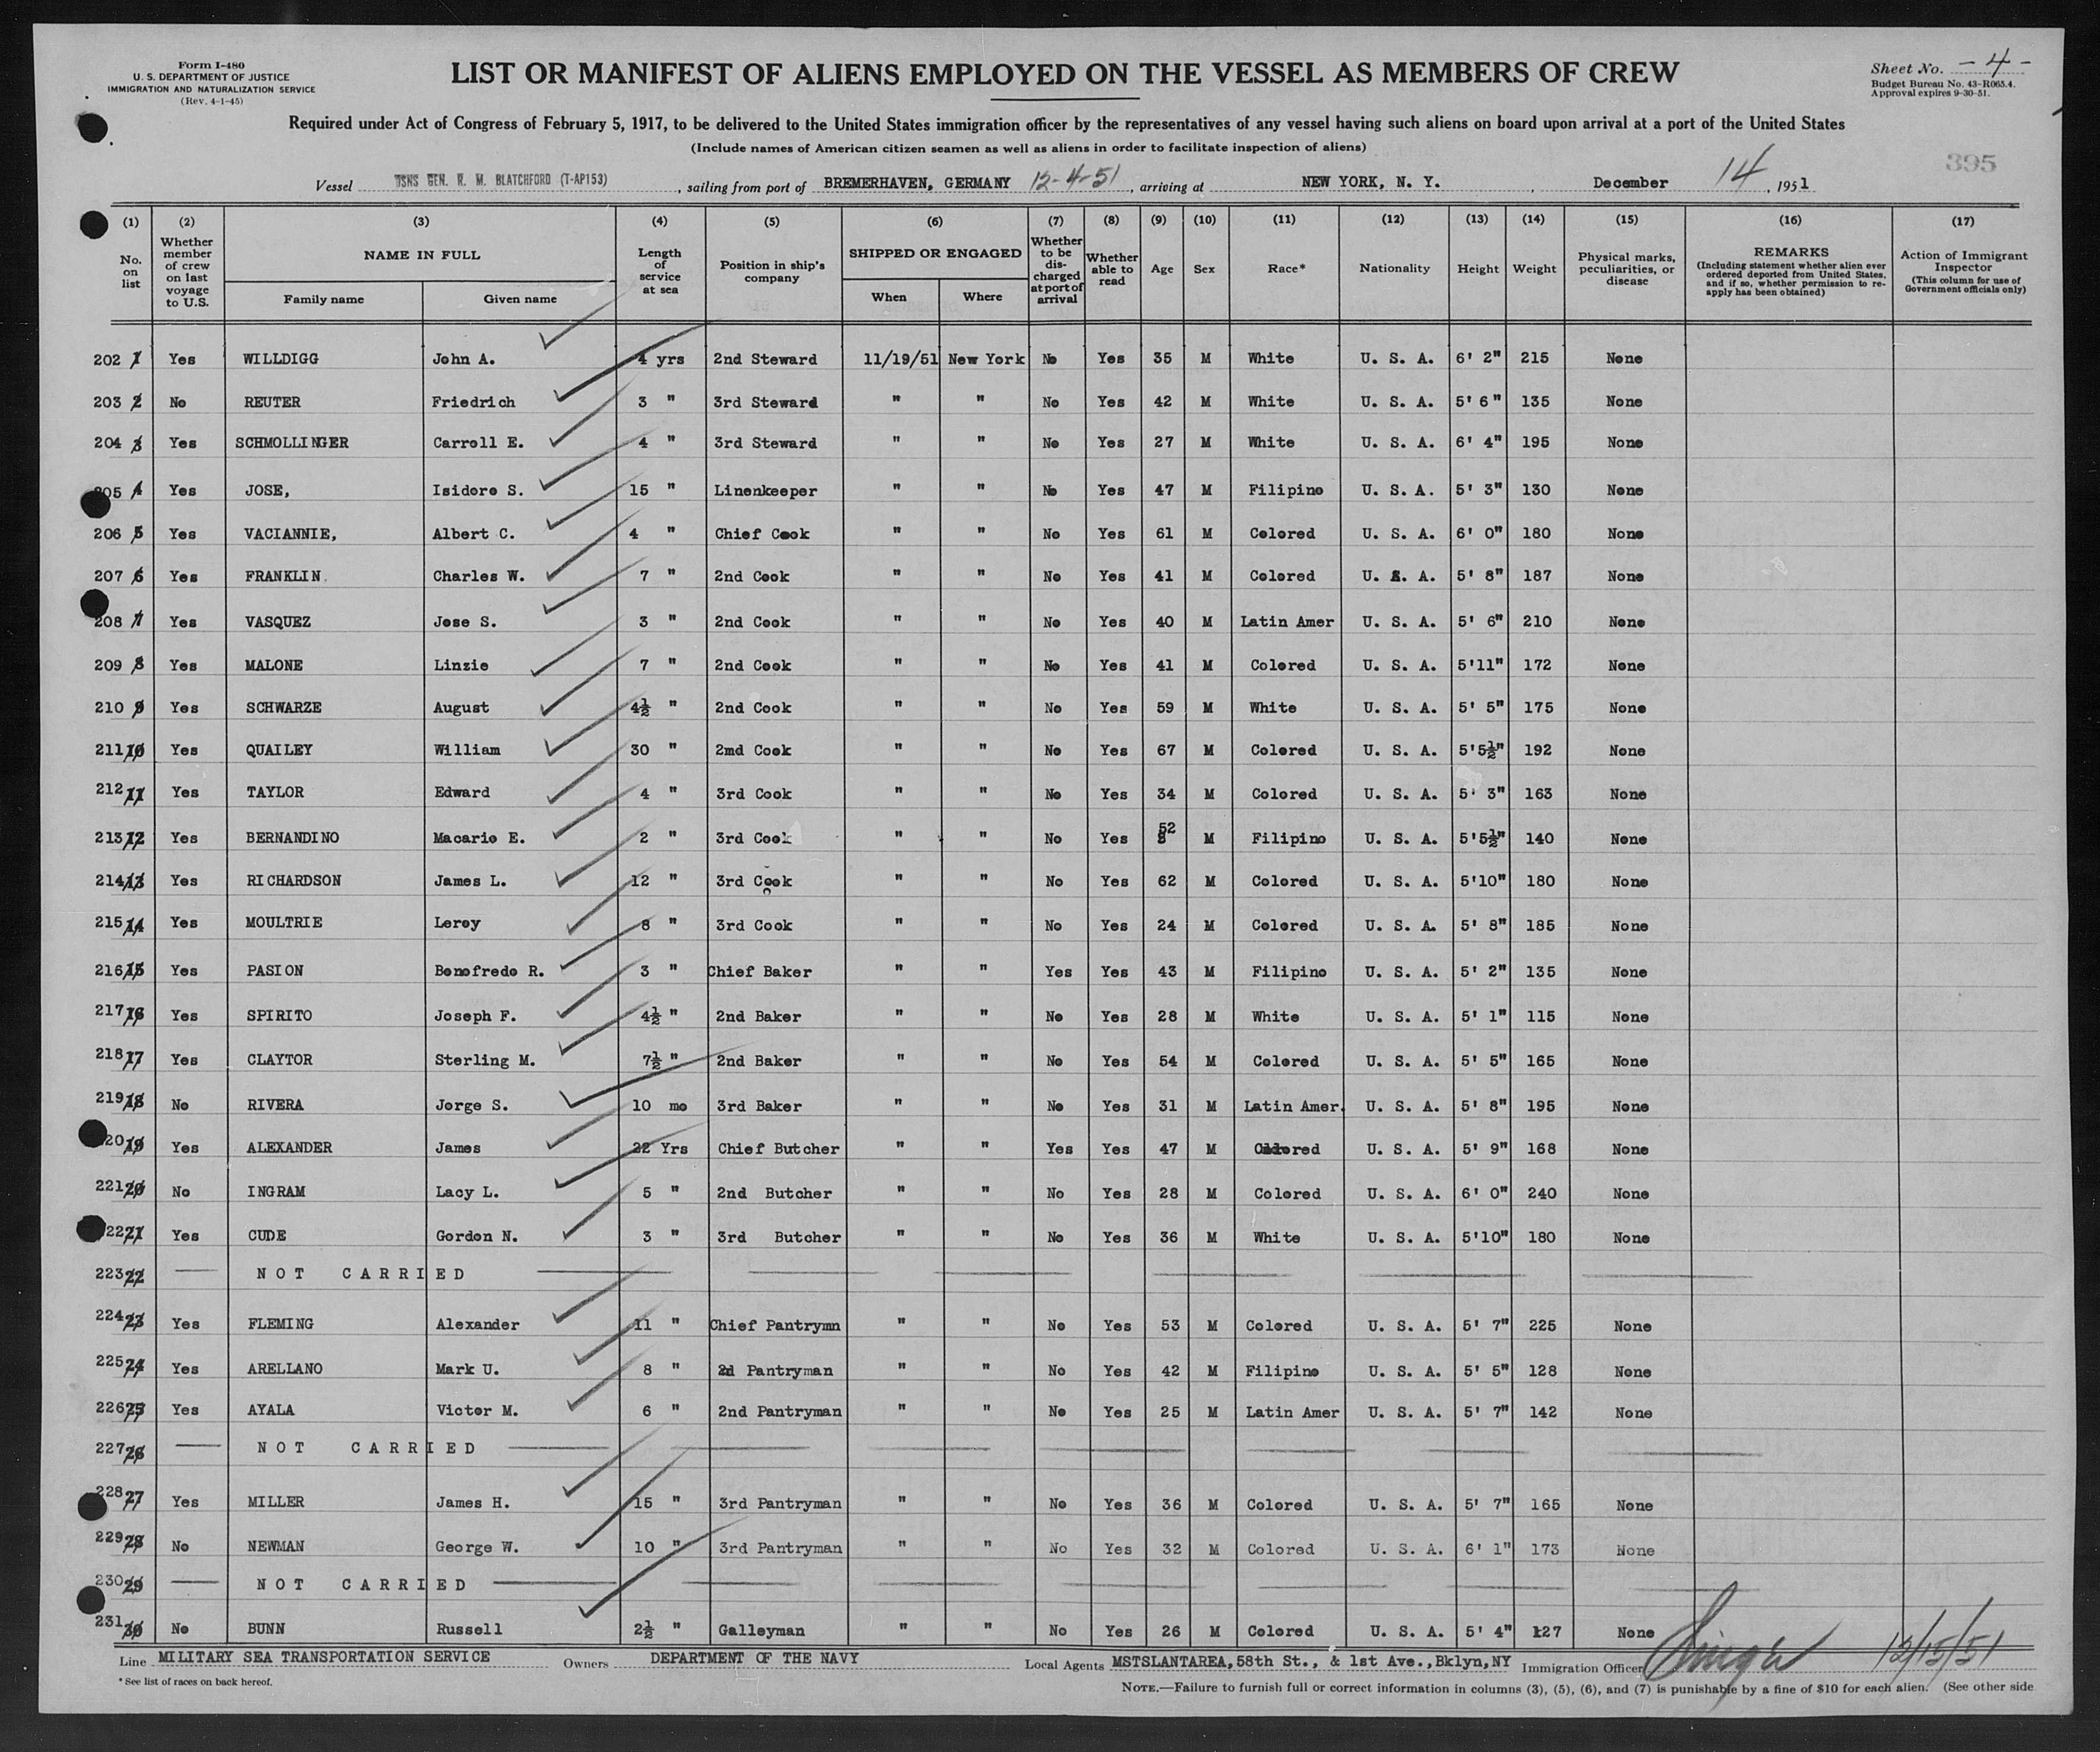 Form I-480
U. S. DEPARTMENT OF JUSTICE
IMMIGRATION AND NATURALIZATION SERVICE
(Rev. 4-1-45)
LIST OR MANIFEST OF ALIENS EMPLOYED ON THE VESSEL AS MEMBERS OF CREW
Sheet No. -4-
Budget Bureau No. 43-R065.4.
Approval expires 9-30-51.
Required under Act of Congress of February 5, 1917, to be delivered to the United States immigration officer by the representatives of any vessel having such aliens on board upon arrival at a port of the United States
(Include names of American citizen seamen as well as aliens in order to facilitate inspection of aliens)
395
Vessel USNS GEN. R. M. BLATCHFORD (T-AP153), sailing from port of BREMERHAVEN, GERMANY 12-4-51, arriving at NEW YORK, N. Y., December 14, 1951
(1) (2) (3) (4) (5) (6) (7) (8) (9) (10) (11) (12) (13) (14) (15) (16) (17)
No. on list
Whether member of crew on last voyage to U.S.
NAME IN FULL
Family name
Given name
Length of service at sea
Position in ship's company
SHIPPED OR ENGAGED
When
Where
Whether to be discharged at port of arrival
Whether able to read
Age
Sex
Race*
Nationality
Height
Weight
Physical marks, peculiarities, or disease
REMARKS
(Including statement whether alien ever ordered deported from United States, and if so, whether permission to re-apply has been obtained)
Action of Immigrant Inspector
(This column for use of Government officials only)
202 1 Yes WILLDIGG John A. 4 yrs 2nd Steward 11/19/51 New York No Yes 35 M White U. S. A. 6' 2" 215 None
203 2 No REUTER Friedrich 3 " 3rd Steward " " No Yes 42 M White U. S. A. 5' 6" 135 None
204 3 Yes SCHMOLLINGER Carroll E. 4 " 3rd Steward " " No Yes 27 M White U. S. A. 6' 4" 195 None
205 4 Yes JOSE, Isidore S. 15 " Linenkeeper " " No Yes 47 M Filipino U. S. A. 5' 3" 130 None
206 5 Yes VACIANNIE, Albert C. 4 " Chief Cook " " No Yes 61 M Colored U. S. A. 6' 0" 180 None
207 6 Yes FRANKLIN Charles W. 7 " 2nd Cook " " No Yes 41 M Colored U. S. A. 5' 8" 187 None
208 7 Yes VASQUEZ Jose S. 3 " 2nd Cook " " No Yes 40 M Latin Amer U. S. A. 5' 6" 210 None
209 8 Yes MALONE Linzie 7 " 2nd Cook " " No Yes 41 M Colored U. S. A. 5'11" 172 None
210 9 Yes SCHWARZE August 4½ " 2nd Cook " " No Yes 59 M White U. S. A. 5' 5" 175 None
211 10 Yes QUAILEY William 30 " 2md Cook " " No Yes 67 M Colored U. S. A. 5'5½" 192 None
212 11 Yes TAYLOR Edward 4 " 3rd Cook " " No Yes 34 M Colored U. S. A. 5' 3" 163 None
213 12 Yes BERNANDINO Macario E. 2 " 3rd Cook " " No Yes 52 M Filipino U. S. A. 5'5½" 140 None
214 13 Yes RICHARDSON James L. 12 " 3rd Cook " " No Yes 62 M Colored U. S. A. 5'10" 180 None
215 14 Yes MOULTRIE Leroy 8 " 3rd Cook " " No Yes 24 M Colored U. S. A. 5' 8" 185 None
216 15 Yes PASION Benofredo R. 3 " Chief Baker " " Yes Yes 43 M Filipino U. S. A. 5' 2" 135 None
217 16 Yes SPIRITO Joseph F. 4½ " 2nd Baker " " No Yes 28 M White U. S. A. 5' 1" 115 None
218 17 Yes CLAYTOR Sterling M. 7½ " 2nd Baker " " No Yes 54 M Colored U. S. A. 5' 5" 165 None
219 18 No RIVERA Jorge S. 10 mo 3rd Baker " " No Yes 31 M Latin Amer. U. S. A. 5' 8" 195 None
20 19 Yes ALEXANDER James 22 Yrs Chief Butcher " " Yes Yes 47 M Colored U. S. A. 5' 9" 168 None
221 20 No INGRAM Lacy L. 5 " 2nd Butcher " " No Yes 28 M Colored U. S. A. 6' 0" 240 None
22 21 Yes CUDE Gordon N. 3 " 3rd Butcher " " No Yes 36 M White U. S. A. 5'10" 180 None
223 22 — NOT CARRIED
224 23 Yes FLEMING Alexander 11 " Chief Pantrymn " " No Yes 53 M Colored U. S. A. 5' 7" 225 None
225 24 Yes ARELLANO Mark U. 8 " 2d Pantryman " " No Yes 42 M Filipino U. S. A. 5' 5" 128 None
226 25 Yes AYALA Victor M. 6 " 2nd Pantryman " " No Yes 25 M Latin Amer U. S. A. 5' 7" 142 None
227 26 — NOT CARRIED
228 27 Yes MILLER James H. 15 " 3rd Pantryman " " No Yes 36 M Colored U. S. A. 5' 7" 165 None
229 28 No NEWMAN George W. 10 " 3rd Pantryman " " No Yes 32 M Colored U. S. A. 6' 1" 173 None
230 29 — NOT CARRIED
231 30 No BUNN Russell 2½ " Galleyman " " No Yes 26 M Colored U. S. A. 5' 4" 127 None
Line MILITARY SEA TRANSPORTATION SERVICE Owners DEPARTMENT OF THE NAVY Local Agents MSTSLANTAREA, 58th St., & 1st Ave., Bklyn, NY Immigration Officer 12/15/51
*See list of races on back hereof.
NOTE.—Failure to furnish full or correct information in columns (3), (5), (6), and (7) is punishable by a fine of $10 for each alien. (See other side